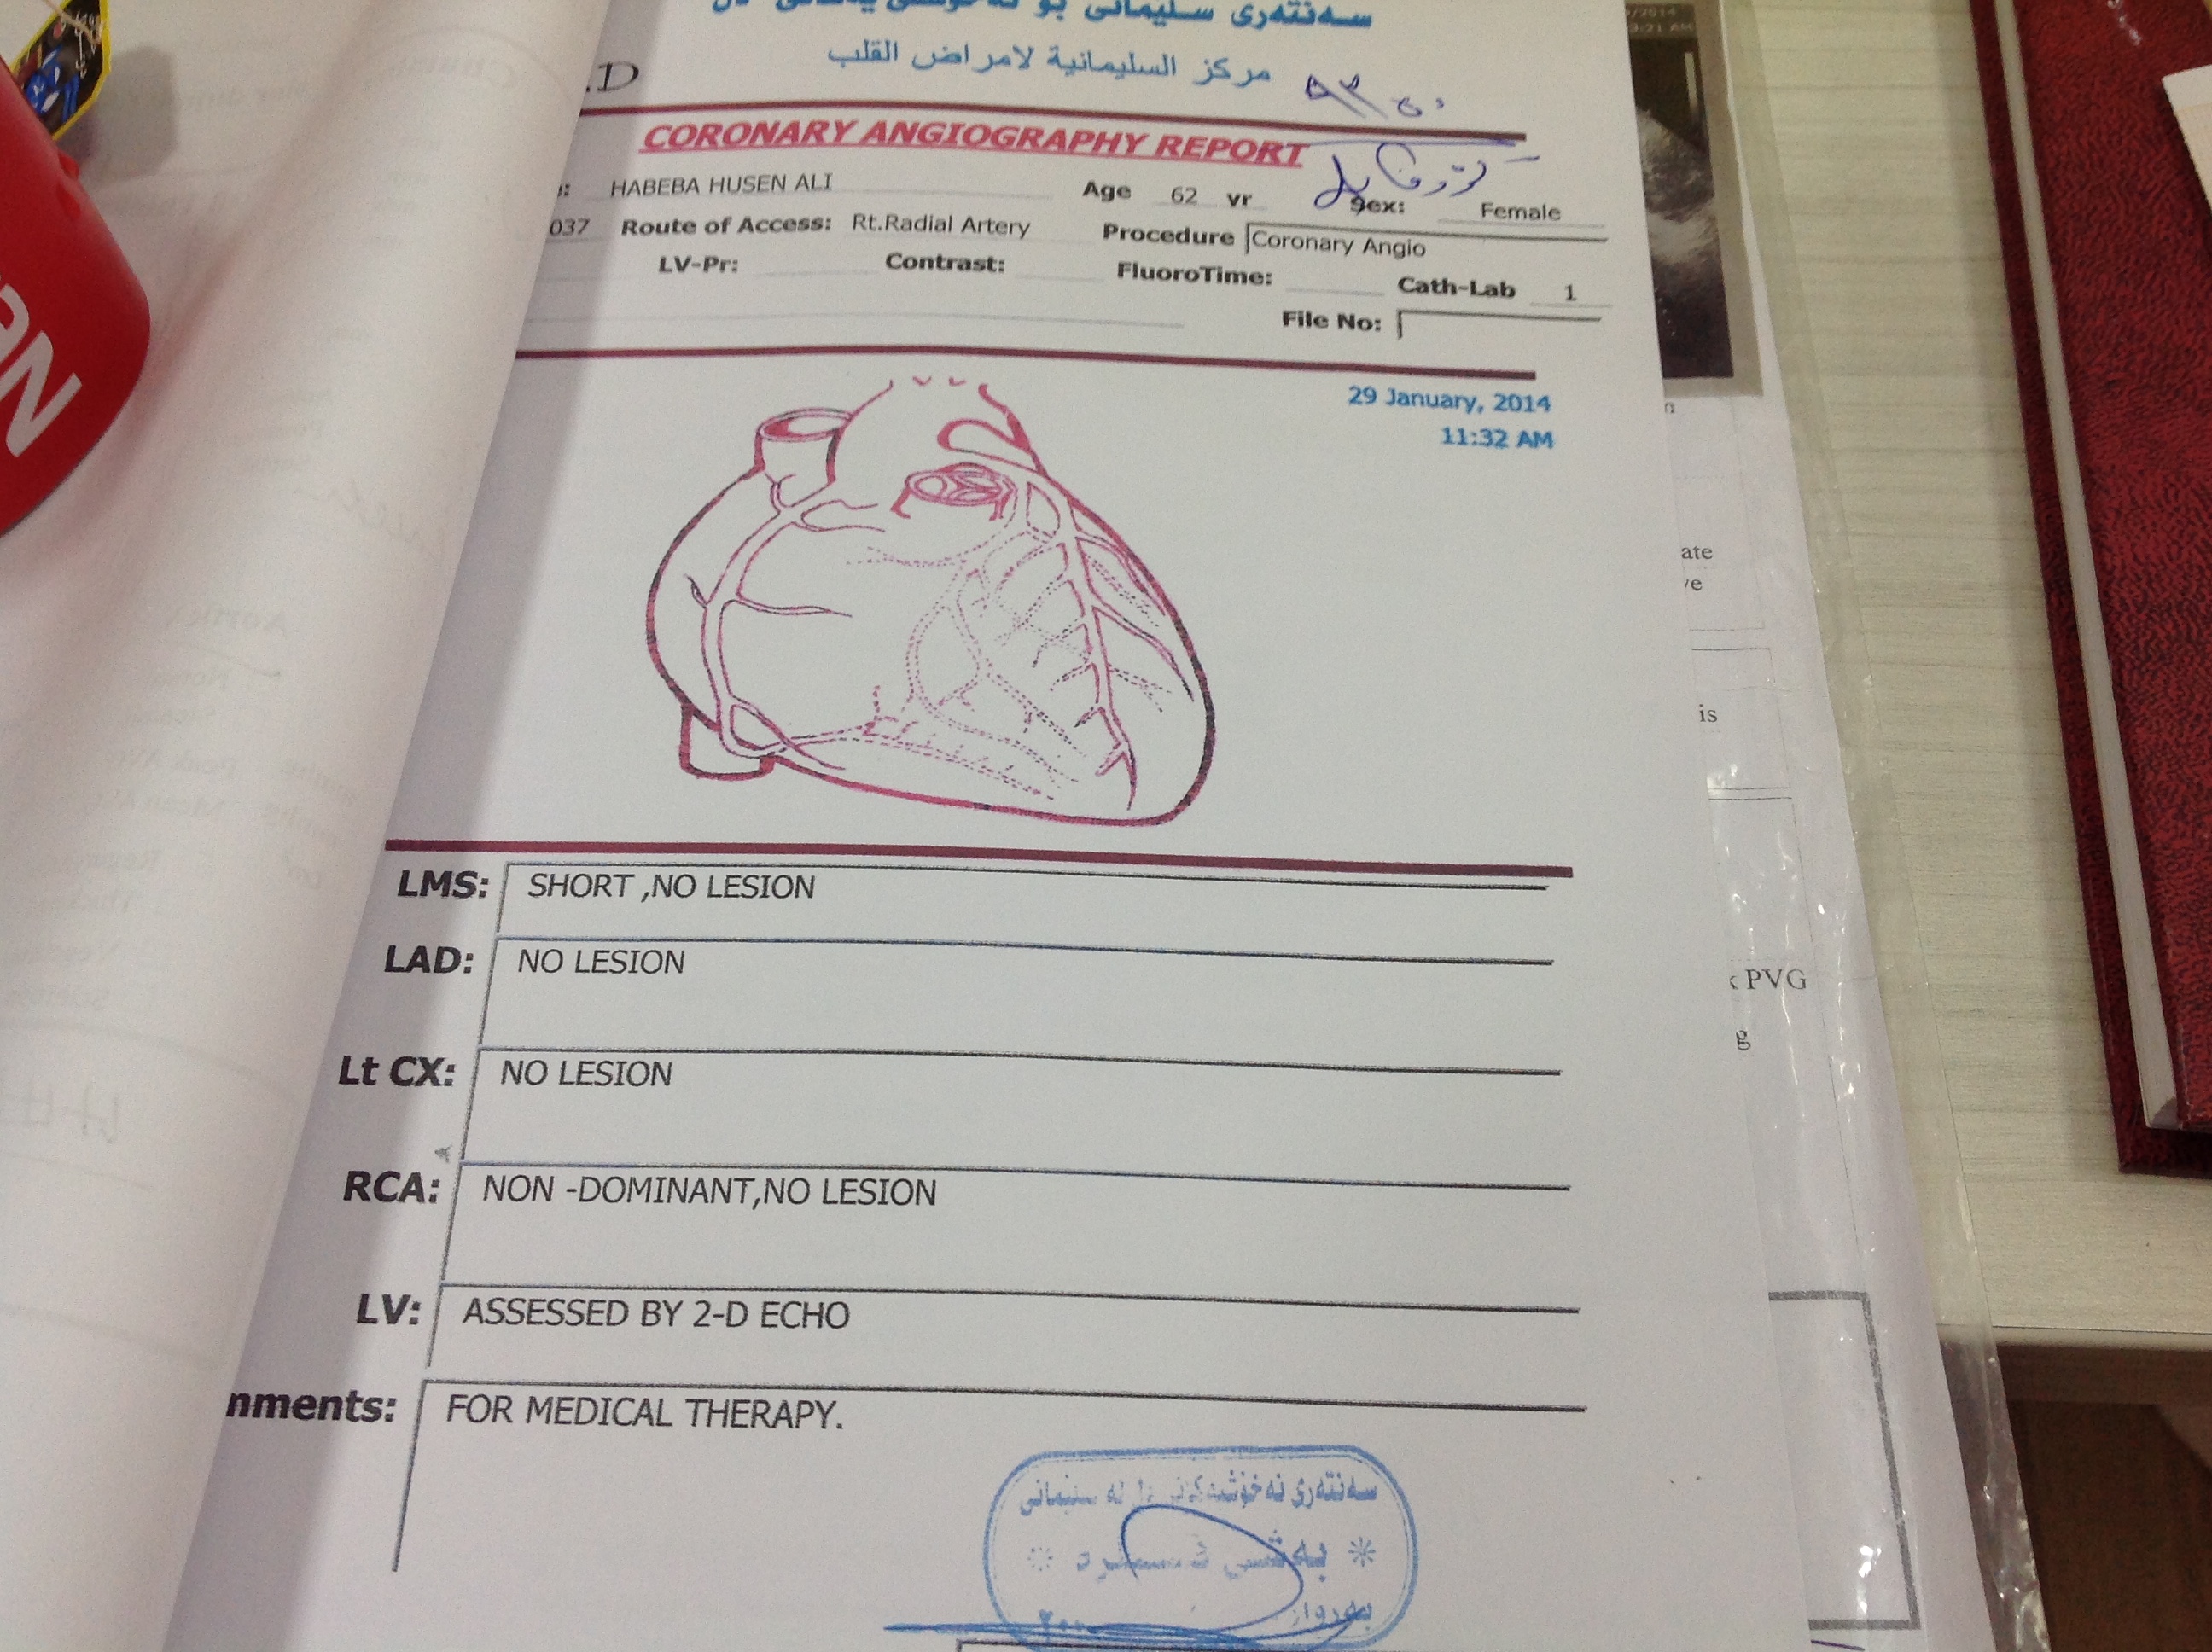 مركز السليمانية لامراض القلب
.D
CORONARY ANGIOGRAPHY REPORT
HABEBA HUSEN ALI Age 62 yr Sex: Female
037 Route of Access: Rt.Radial Artery Procedure Coronary Angio
LV-Pr: Contrast: FluoroTime: Cath-Lab 1
File No:
29 January, 2014
11:32 AM
LMS: SHORT ,NO LESION
LAD: NO LESION
Lt CX: NO LESION
RCA: NON -DOMINANT,NO LESION
LV: ASSESSED BY 2-D ECHO
nments: FOR MEDICAL THERAPY.
Ne
ate
is
PVG
g